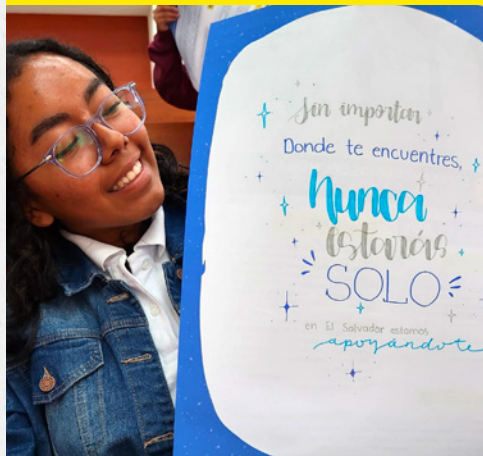 Sin importar
Donde te encuentres,
Nunca
estarás
SOLO
en El Salvador estamos
apoyándote